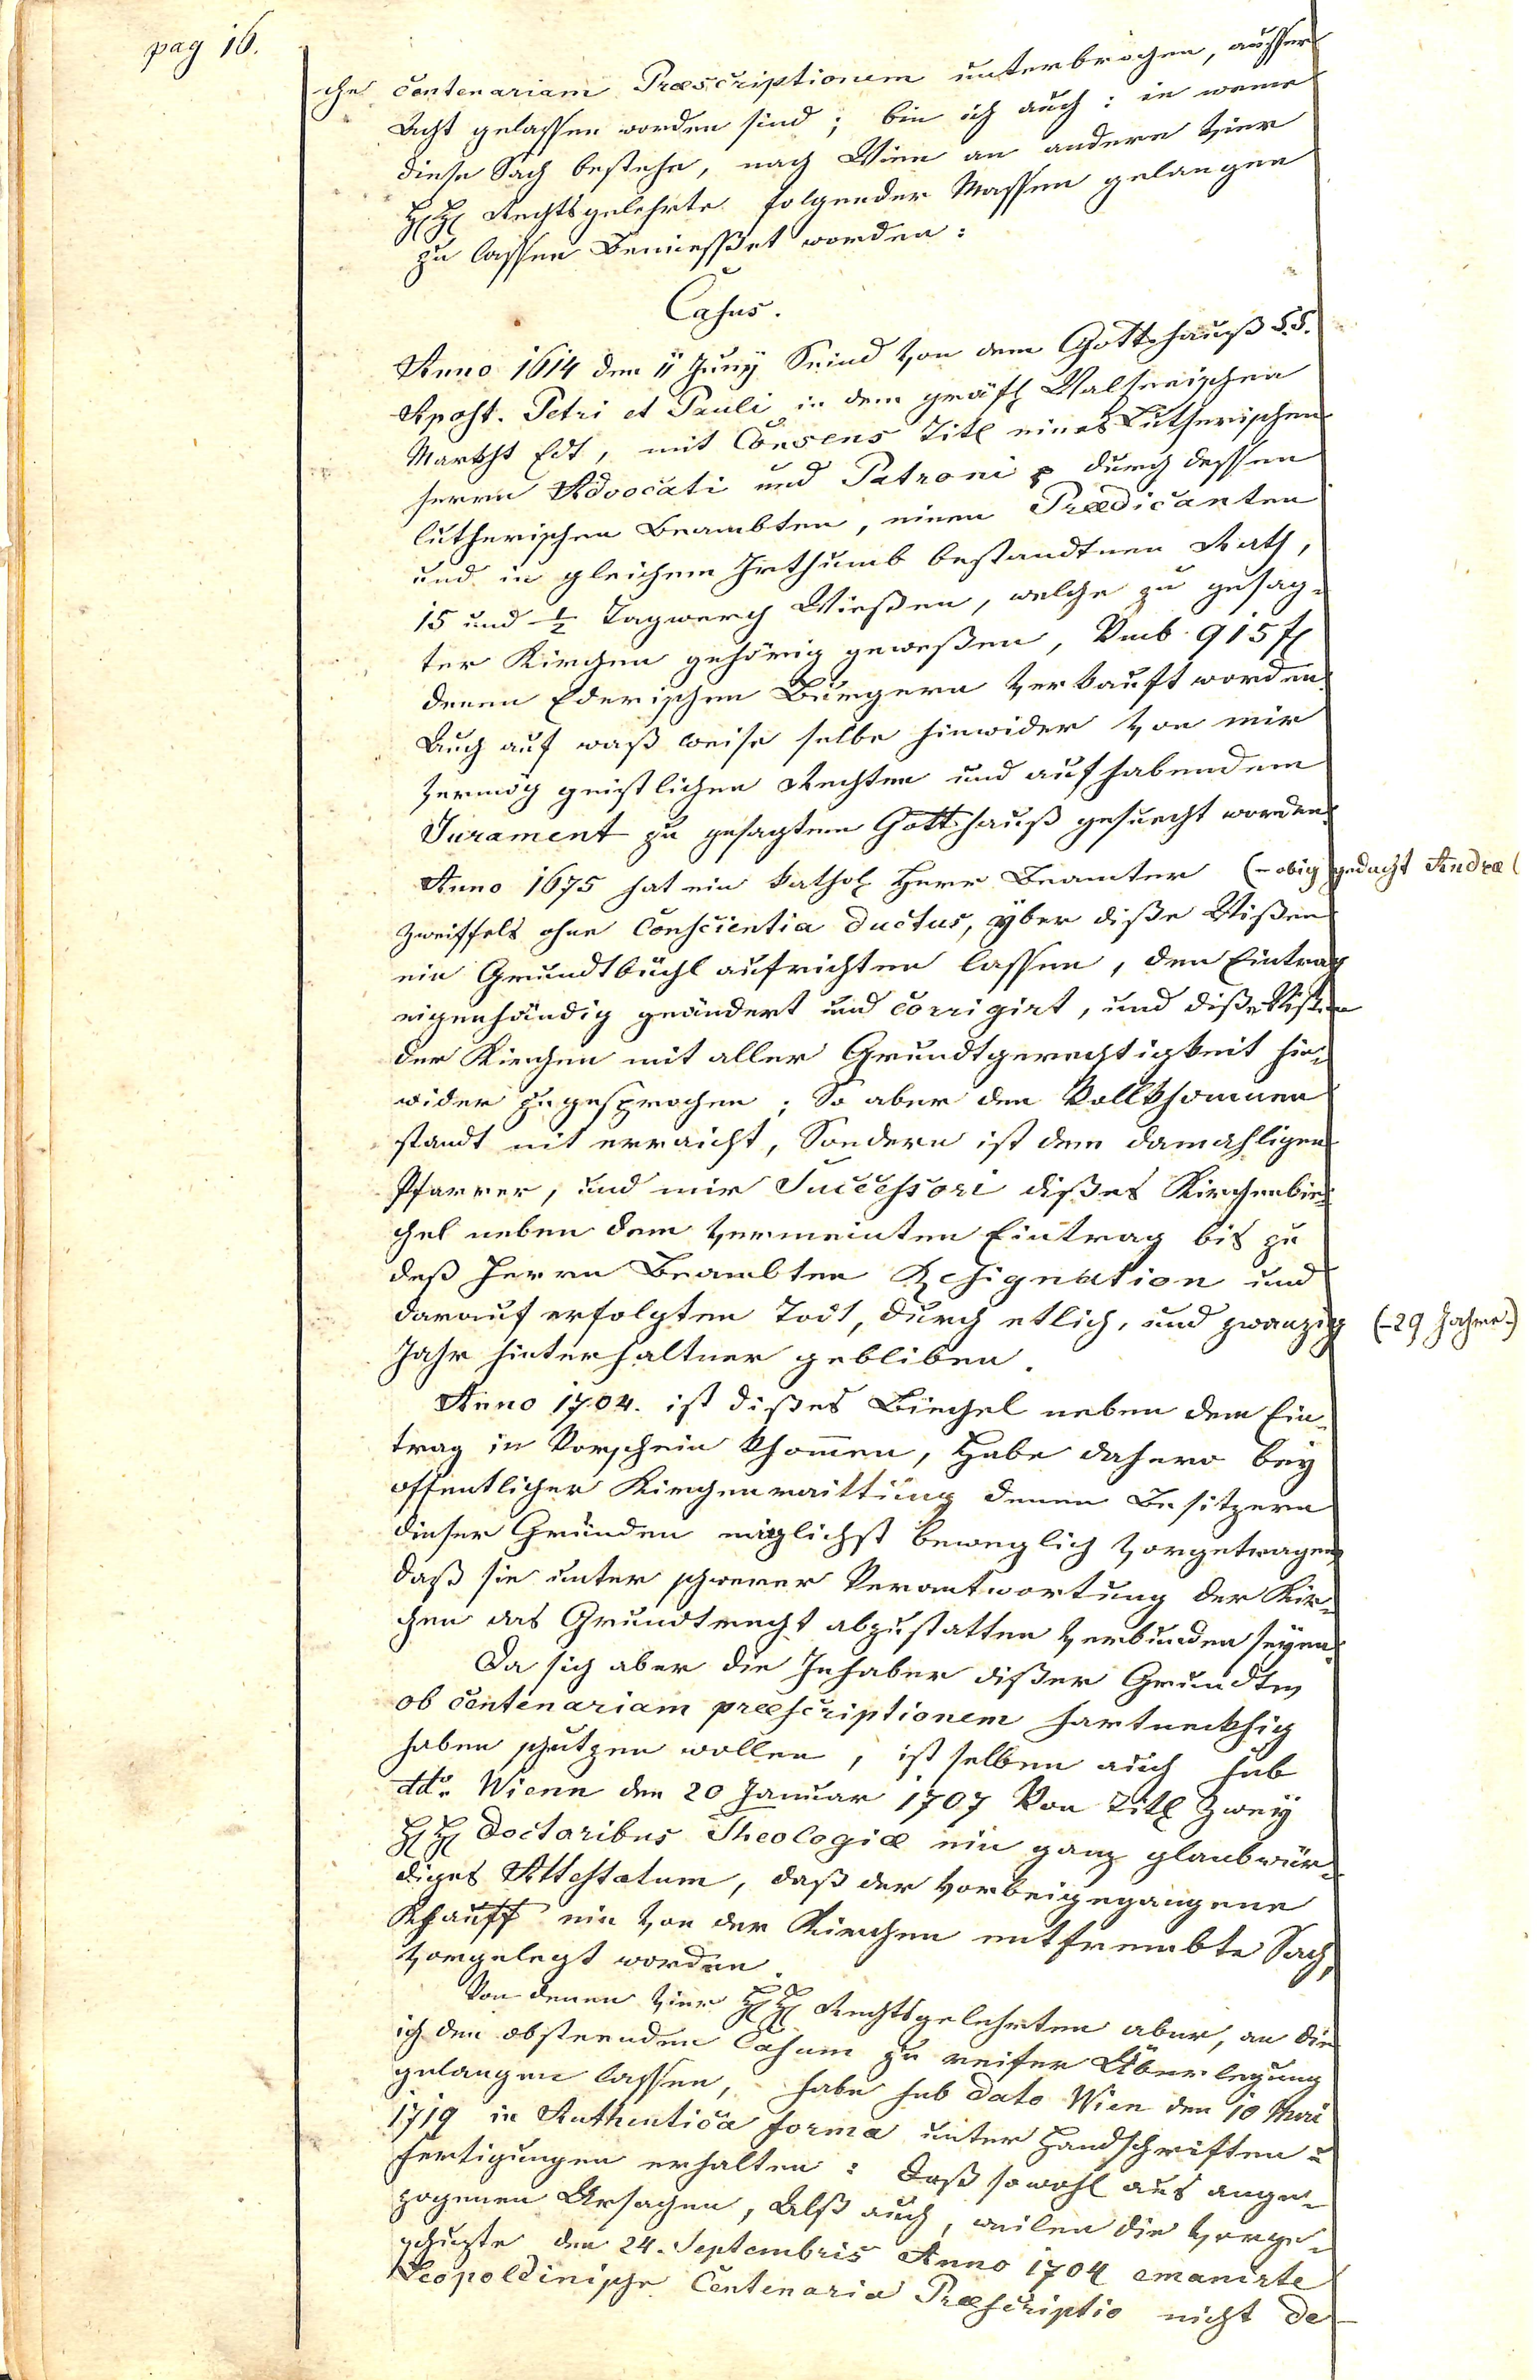 pag 16.
che centenariam Præscriptionem unterbrochen, ausser
Acht gelassen worden sind; bin ich auch: in weme
diese Sach bestehe, nach Wien an andere vier
HH Rechtsgelehrte folgender Massen gelangen
zu lassen bemiessßet worden:
Casus.
Anno 1614 den 11 Juny Seind von dem Gottshauß S.S.
Apost. Petri et Pauli in dem gräfl Salburischen
Markht Edt, mit Consens Titl eines Lutherischen
herrn Advocati und Patroni durch dessen
lutherischen Beambten, einen Prædicanten
und in gleichem Irthumb bestandtnen Rath,
15 und ½ Tagwerch Wießen, welche zu gesag-
ter Kirchen gehörig geweßen, Umb 915 fl
denen Ederischen Bürgern verkauft worden.
Auch auf waß weise selbe hinwider von mir
vermög geistlichen Rechten und aufhabendem
Jurament zu gesagtem Gottshauß gesuecht worden.
Anno 1675 hat ein kathol Herr Beamter (-obig gedacht Andræ(
zweiffels ohne Conscientia ductus, yber diße Wißen
ein Grundtbüchl aufrichten lassen, den Eintrag
eigenhändig geändert und corrigirt, und diße Wisten
der Kirchen mit aller Grundtgerechtigkeit hin-
wider zugesprochen; So aber den Vollkhommen
standt nit erraicht, Sondern ist dem damahligen
Pfarrer, und mir Successori dißes Kirchenbie-
chel neben dem vermeinten Eintrag bis zu
deß Herrn Beambten Resignation und
darauf erfolgten Todt, durch etlich, und zwanzig (-29 Jahre-)
Jahr hinterhaltner gebliben.
Anno 1704. ist dißes Biechel neben dem Ein-
trag in Vorschein khommen, Habe dahero bey
offentlicher Kirchenraittung denen Besitzern
dieser Gründen möglichst beweglich vorgetragen,
daß sie unter schwerer Verantwortung der Kir-
chen das Grundtrecht abzustatten verbunden seyen.
Da sich aber die Inhaber dißer Grundten
ob centenariam præscriptionem hartneckhig
haben schutzen wollen, ist selben auch sub
ddo. Wienn den 20 Januar 1707 Von Titl Zwey
HH Doctoribus Theologiæ ein ganz glaubwür-
diges Attestatum, daß der vorbeigegangene
Khauff ein von der Kirchen entfrembte Sach,
vorgelegt worden.
Von denen vier HH Rechtsgelehrten aber, an die
ich den obsteenden Casum zu reifer Überlegung
gelangen lassen, habe sub dato Wien den 10 Mai
1719 in Authentica forma unter Handschriften u
Fertigungen erhalten: daß sowohl aus ange-
zogenen Ursachen, Alß auch, weilen die vorge-
schuzte den 24. Septembris Anno 1704 emanirte
Leopoldinische Centenaria Præscriptio nicht de-